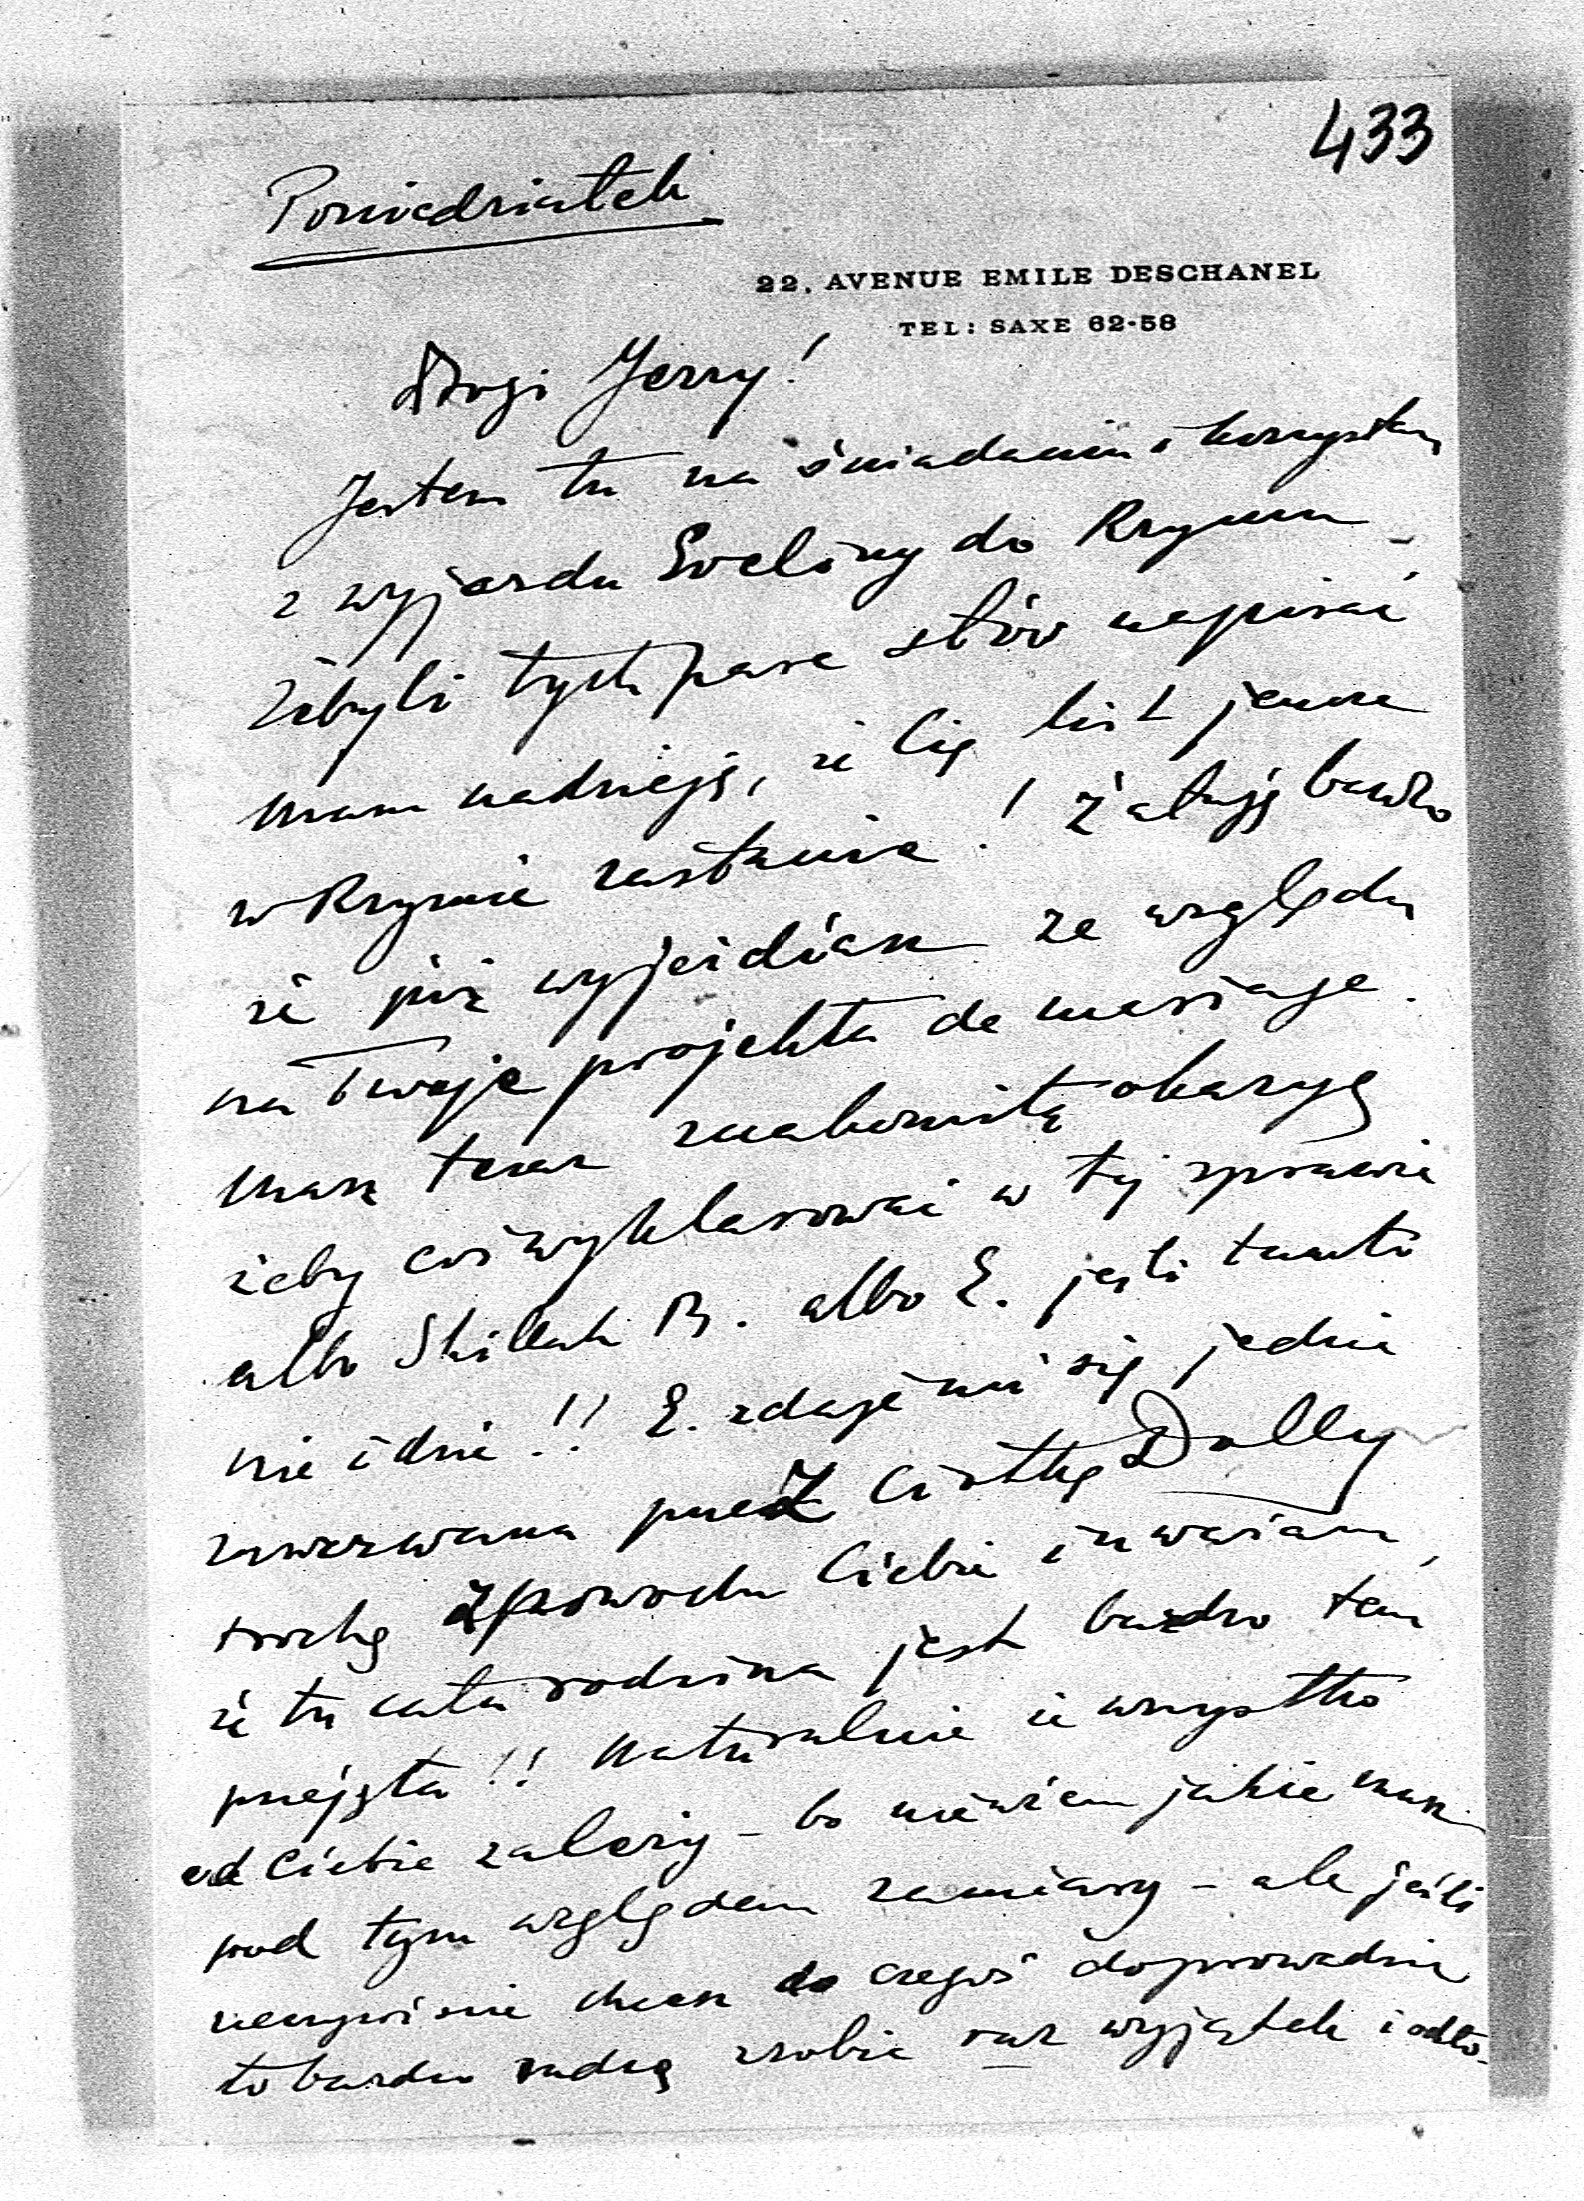 433
Poniedziałek
22, AVENUE EMILE DESCHANEL
TEL: SAXE 62-58
Drogi Jerzy!
Jestem tu na śniadaniu i korzystam
z wyjazdu Eveliny do Rzymu –
żeby Ci tych parę słów napisać
mam nadzieję, że Cię list jeszcze
w Rzymie zastanie! Żałuję bardzo
że już wyjeżdżasz ze względu
na Twoje projekta de mariage.
Masz teraz znakomitą okazyę
żeby coś wyklarować w tej sprawie
albo B. albo E. jeśli tamto
nie idzie!! E. zdaje mi się jedzie
zawezwana przez Ciotkę Dolly
trochę z powodu Ciebie i uważam,
że tu cała rodzina jest bardzo tem
przejęta!! Naturalnie że wszystko
od Ciebie zależy – bo nie wiem jakie masz
pod tym względem zamiary – ale jeśli
rzeczywiście chcesz do czegoś doprowadzić
to bardzo radzę zrobić raz wyjątek i odło-